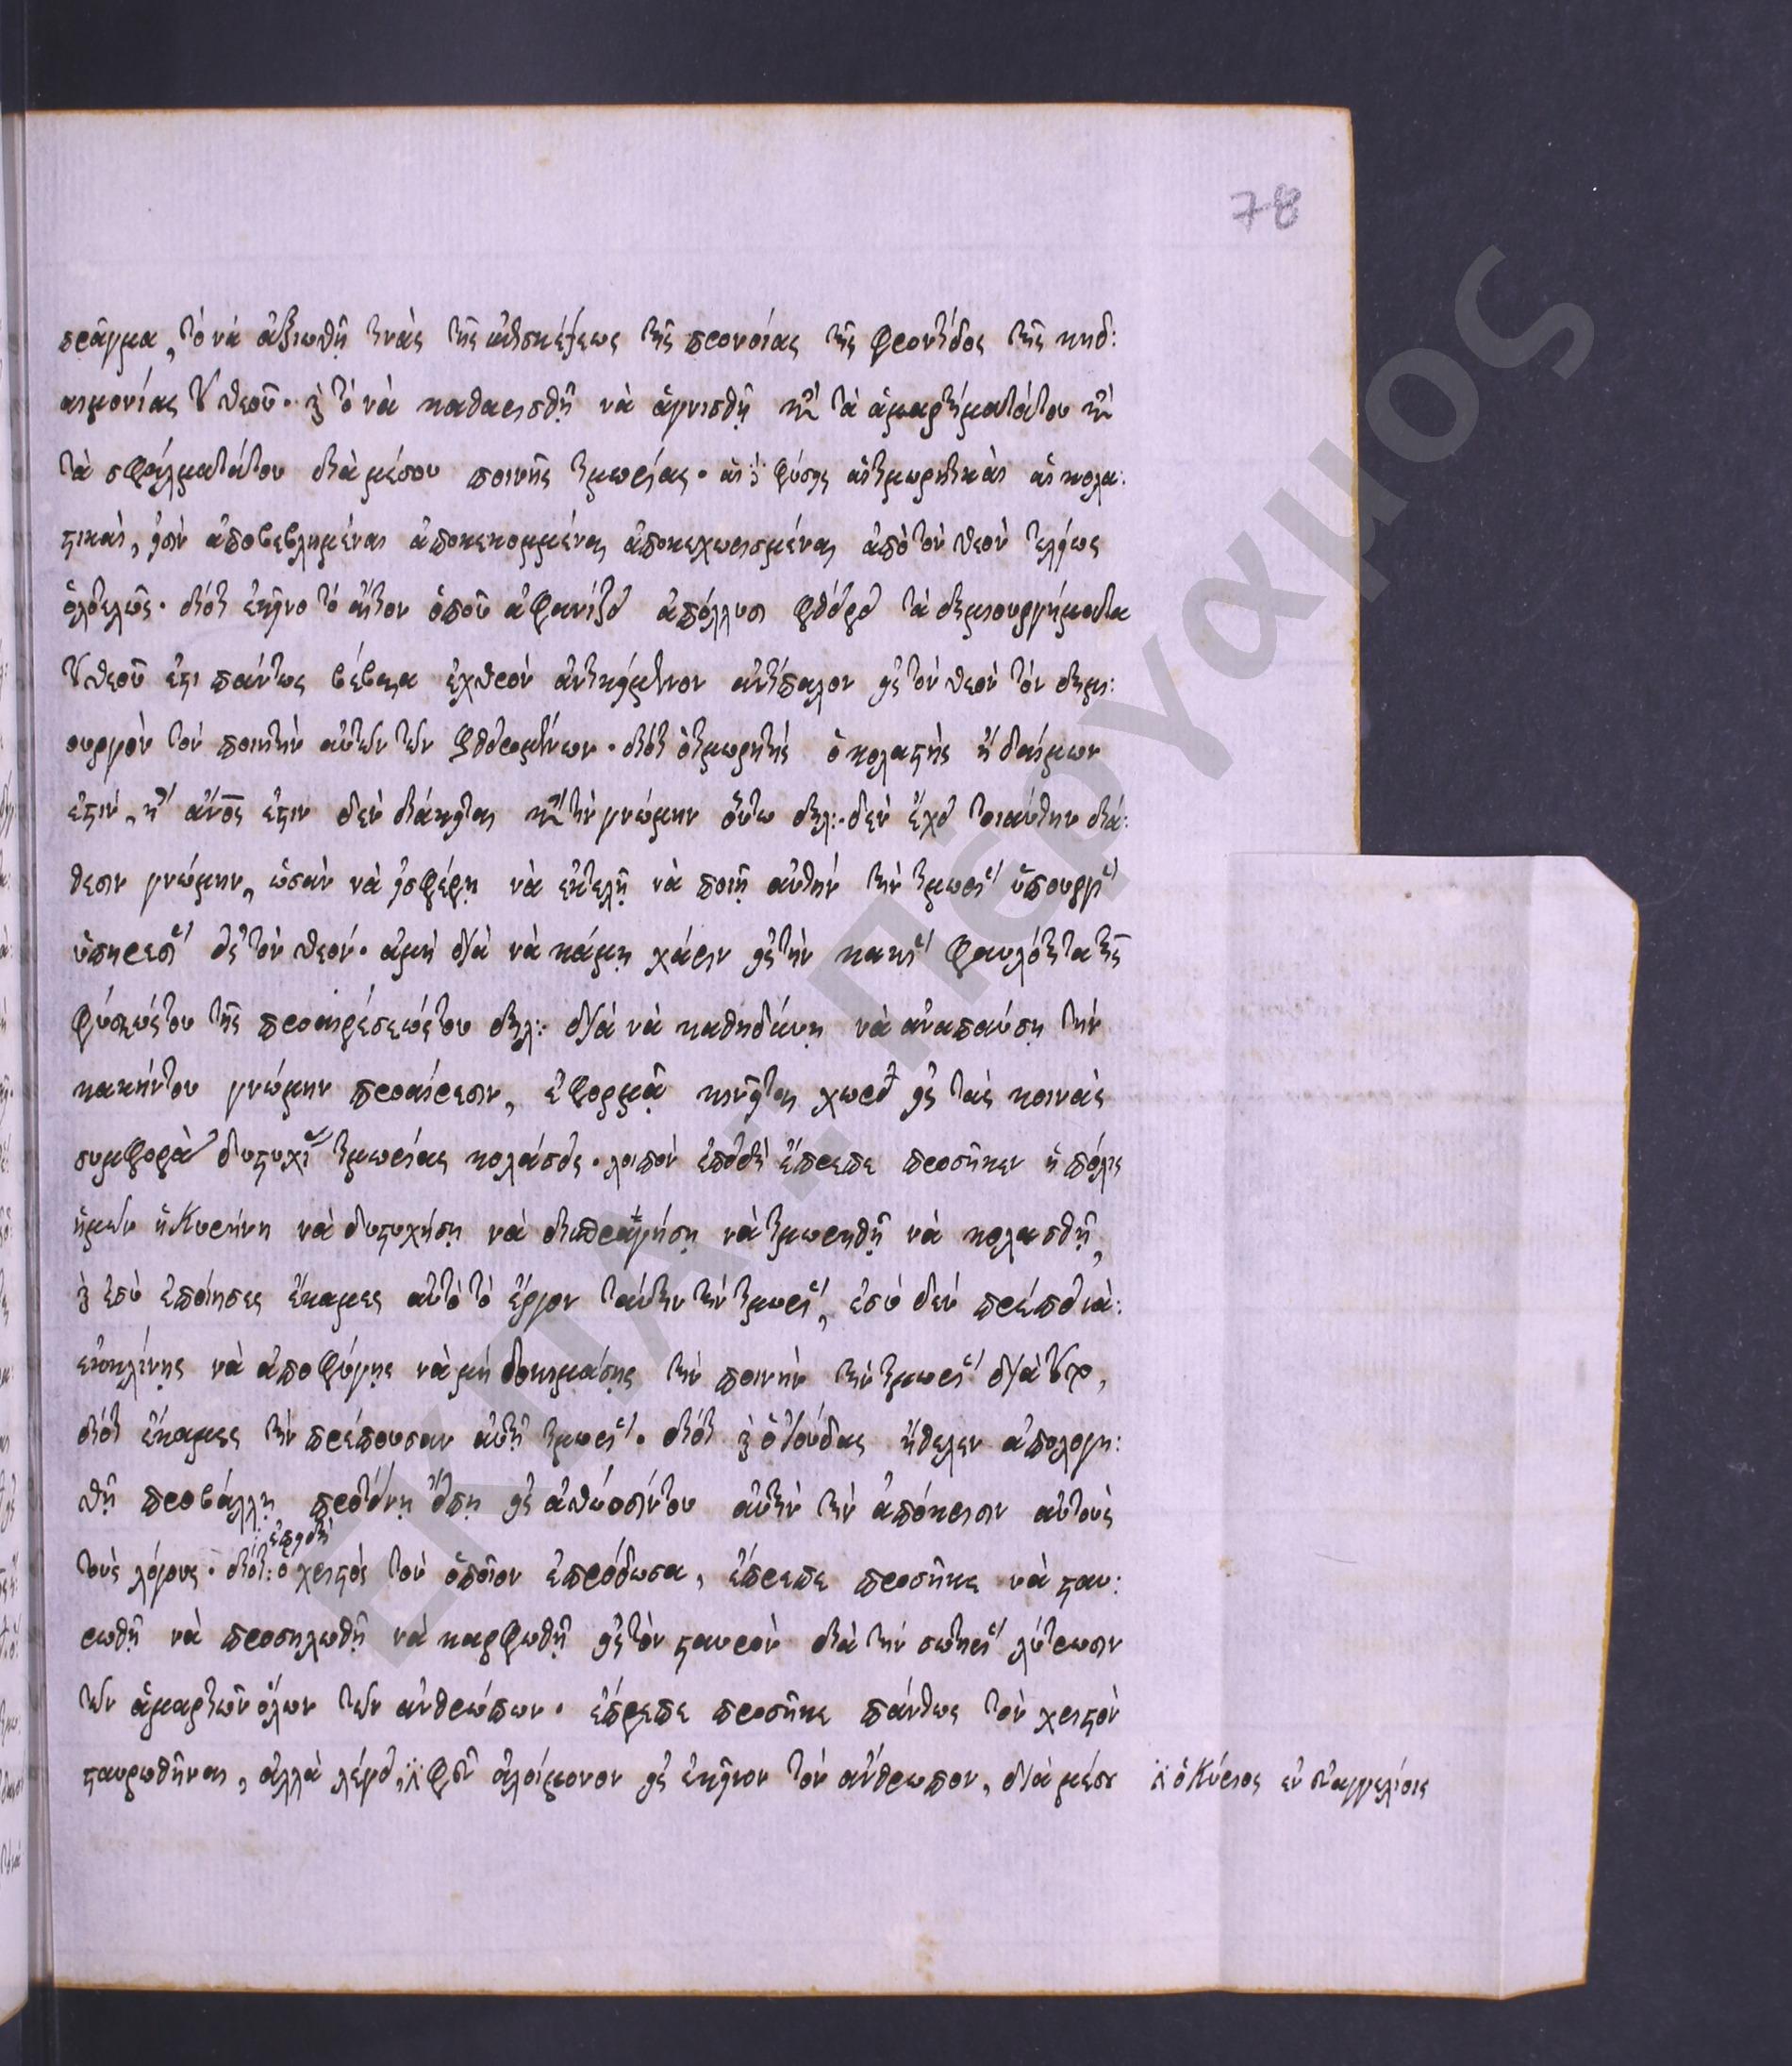 78
πρᾶγμα, τὸ νὰ ἀξιωθῇ τινὰς τῆς ἐπισκέψεως τῆς προνοίας τῆς φροντίδος τῆς κηδ:
αιμονίας τοῦ θεοῦ· καὶ τὸ νὰ καθαρισθῇ νὰ ἁγνισθῇ κατὰ τὰ ἁμαρτήματάτου κατὰ
τὰ σφάλματάτου διὰ μέσου ποινῆς τιμωρίας· αἱ φύσεις αἱ τιμωρητικαὶ αἱ κολα:
στικαὶ, εἰσὶν ἀποβεβλημέναι ἀποκεκομμέναι ἀποκεχωρισμέναι ἀπὸ τὸν θεὸν τελείως
ὁλοτελῶς· διότι ἐκεῖνο τὸ αἴτιον ὁποῦ ἀφανίζει ἀπόλλυσι φθείρει τὰ δημιουργήματα
τοῦ θεοῦ ἐστι πάντως βέβαια ἐχθρὸν ἀντικείμενον ἀντίπαλον εἰς τὸν θεὸν τὸν δημι:
ουργὸν τὸν ποιητὴν αὐτῶν τῶν φθειρομένων· διότι ὁ τιμωρητὴς ὁ κολαστὴς ἢ δαίμων
ἐστὶν, ἢ ἄνος ἐστιν δὲν διάκειται κατὰ τὴν γνώμην οὕτω δηλ: δὲν ἔχει τοιαύτην διά:
θεσιν γνώμην, ὡσὰν νὰ εἰσφέρῃ νὰ ἐκτελῇ νὰ ποιῇ αὐτὴν τὴν τιμωρίαν ὑπουργίαν
ὑπηρεσίαν εἰς τὸν θεόν· ἀμὴ διὰ νὰ κάμῃ χάριν εἰς τὴν κακίαν φαυλότητα τῆς
φύσεώςτου τῆς προαιρέσεώςτου δηλ: διὰ νὰ καθηδύνῃ νὰ ἀναπαύσῃ τὴν
κακήντου γνώμην προαίρεσιν, ἐφορμᾷ κινεῖται χωρεῖ εἰς τὰς κοινὰς
συμφορὰς δυστυχίας τιμωρίας κολάσεις· λοιπὸν ἐπειδὴ ἔπρεπε προσῆκεν ἡ πόλις
ἡμῶν ἡ Κυρήνη νὰ δυστυχήσῃ νὰ δυσπραγήσῃ νὰ τιμωρηθῇ νὰ κολασθῇ,
καὶ ἐσὺ ἐποίησες ἔκαμες αὐτὸ τὸ ἔργον ταύτην τὴν τιμωρίαν, ἐσὺ δὲν πρέπει νὰ:
ἐκκλίνῃς νὰ ἀποφύγῃς νὰ μὴ δοκιμάσῃς τὴν ποινὴν τὴν τιμωρίαν διὰ τοῦτο,
διότι ἔκαμες τὴν πρέπουσαν αὐτῇ τιμωρίαν· διότι καὶ ὁ Ἰούδας ἤθελεν ἀπολογη:
θῇ προβάλλῃ προτείνῃ εἴπῃ εἰς ἀθώωσίντου αὐτὴν τὴν ἀπόκρισιν αὐτοὺς
τοὺς λόγους· διότι: ἐπειδὴ ὁ χριστὸς τὸν ὁποῖον ἐπρόδωσα, ἔπρεπε προσῆκε νὰ σταυ:
ρωθῇ νὰ προσηλωθῇ νὰ καρφωθῇ εἰς τὸν σταυρὸν διὰ τὴν σωτηρίαν λύτρωσιν
τῶν ἁμαρτιῶν ὅλων τῶν ἀνθρώπων· ἔπρεπε προσῆκε πάντως τὸν χριστὸν
σταυρωθῆναι, ἀλλὰ λέγει, φεῦ ἀλοίμονον εἰς ἐκεῖνον τὸν ἄνθρωπον, διὰ μέσου
ὁ Κύριος ἐν εὐαγγελίοις
ΕΚΠΑ: Πέργαμος